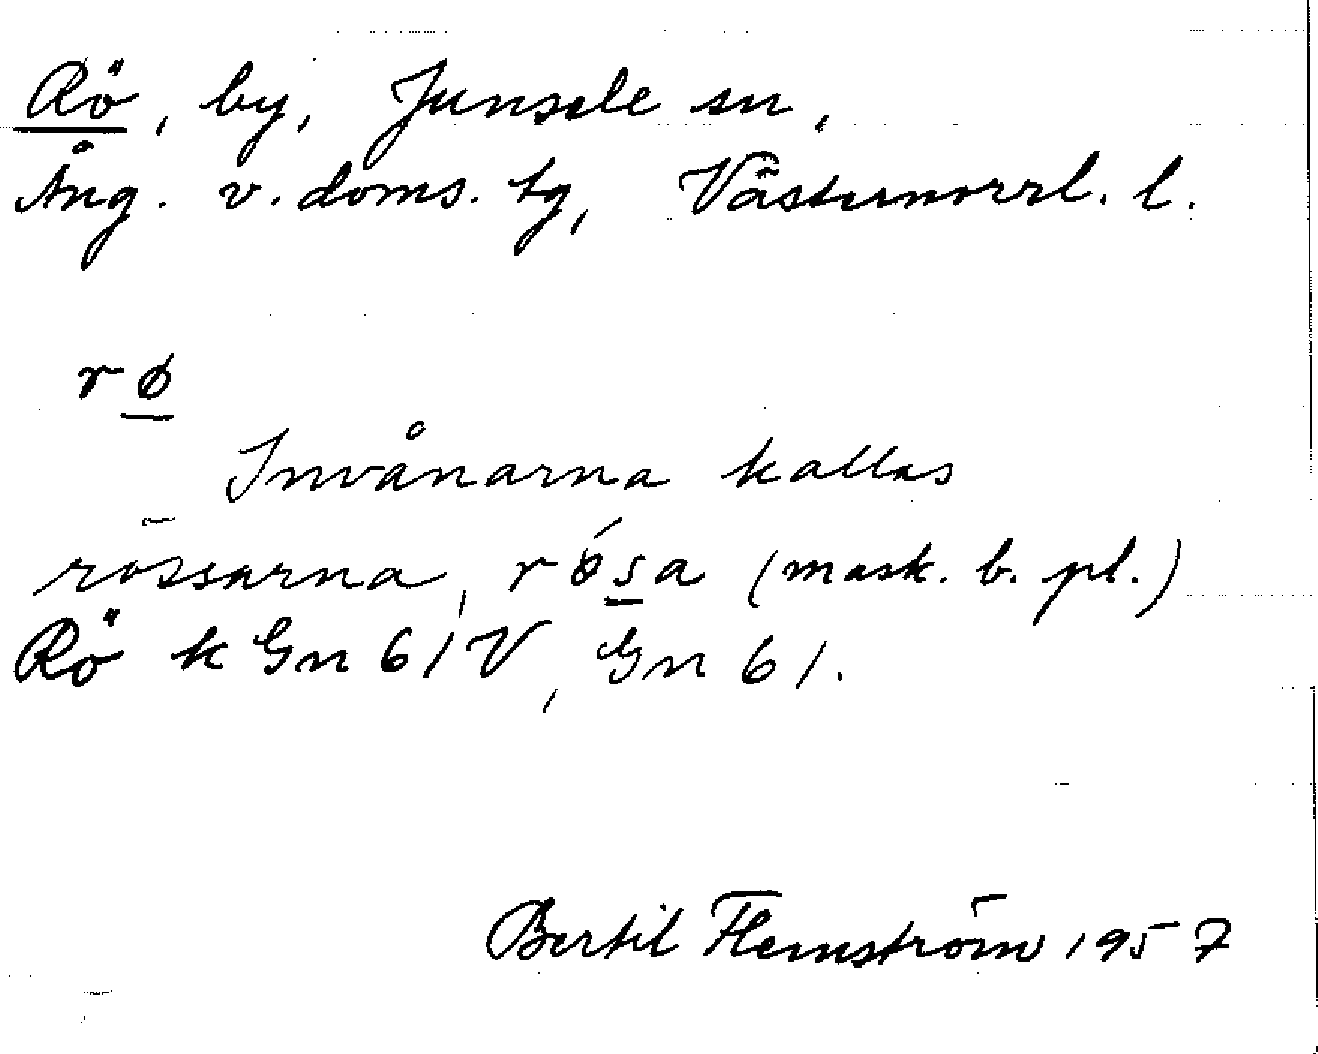 Rö, by, Junsele sn,
Ång. v. doms. tg, Västernorrl. l.
rø
Invånarna kallas
rössarna, røsa (mask. b. pl.)
Rö k Gn 61 V, Gn 61.
Bertil Flemström 1957